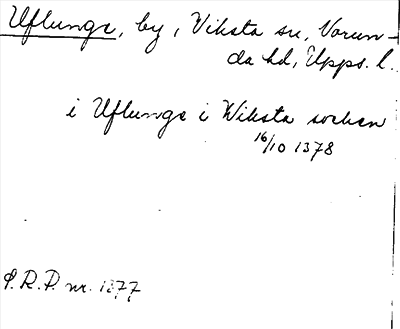 Uflunge, by, Viksta sn, Norun-
da hd, Upps. l.
i Uflunge i Wiksta sochen
16/10 1378
S.R.P. nr. 1377